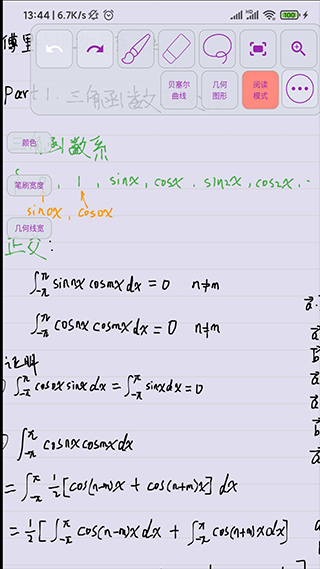 13:44 | 6.7K/s
100
傅里
贝塞尔曲线
几何图形
阅读模式
Part 1. 三角函数
颜色
函数系
笔刷宽度
, 1 , sinx, cosx, sin2x, cos2x, ..
sin0x, cos0x
几何线宽
正交:
∫_{-π}^{π} sinnx cosmx dx = 0 n≠m
∫_{-π}^{π} cosnx cosmx dx = 0 n≠m
证明
∫_{-π}^{π} cos0x sinx dx = ∫_{-π}^{π} sinx dx = 0
∫_{-π}^{π} cosnx cosmx dx
= ∫_{-π}^{π} 1/2 [cos(n-m)x + cos(n+m)x] dx
= 1/2 [∫_{-π}^{π} cos(n-m)x dx + ∫_{-π}^{π} cos(n+m)x dx]